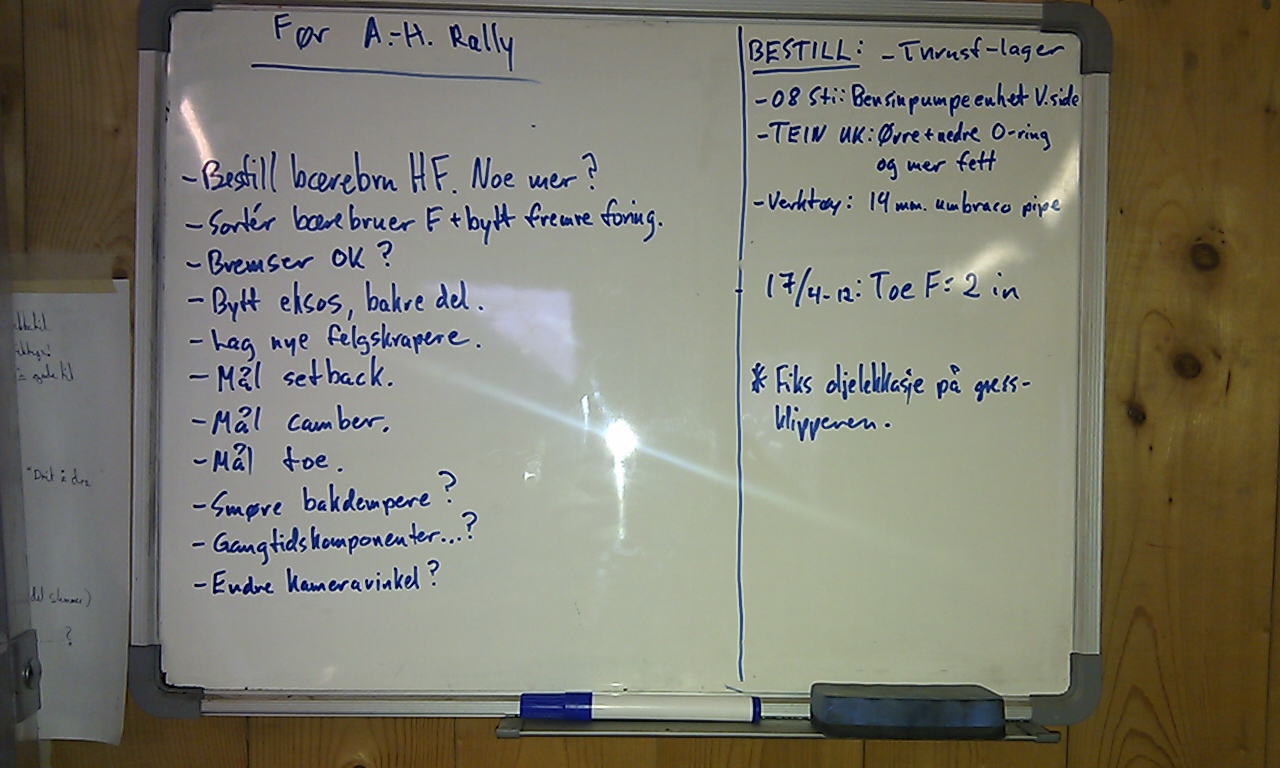 Før A.-H. Rally
- Bestill bærebru HF. Noe mer?
- Sortér bærebruer F + bytt fremre foring.
- Bremser OK?
- Bytt eksos, bakre del.
- Lag nye felgskrapere.
- Mål setback.
- Mål camber.
- Mål toe.
- Smøre bakdempere?
- Gangtidskomponenter...?
- Endre kameravinkel?
BESTILL: - Thrust-lager
- 08 Sti: Bensinpumpeenhet V.side
- TEIN UK: Øvre + nedre O-ring
og mer fett
- Verktøy: 19 mm. umbraco pipe
17/4-12: Toe F: 2 in
* Fiks oljelekkasje på gress-
klipperen.
del stemmer)
?